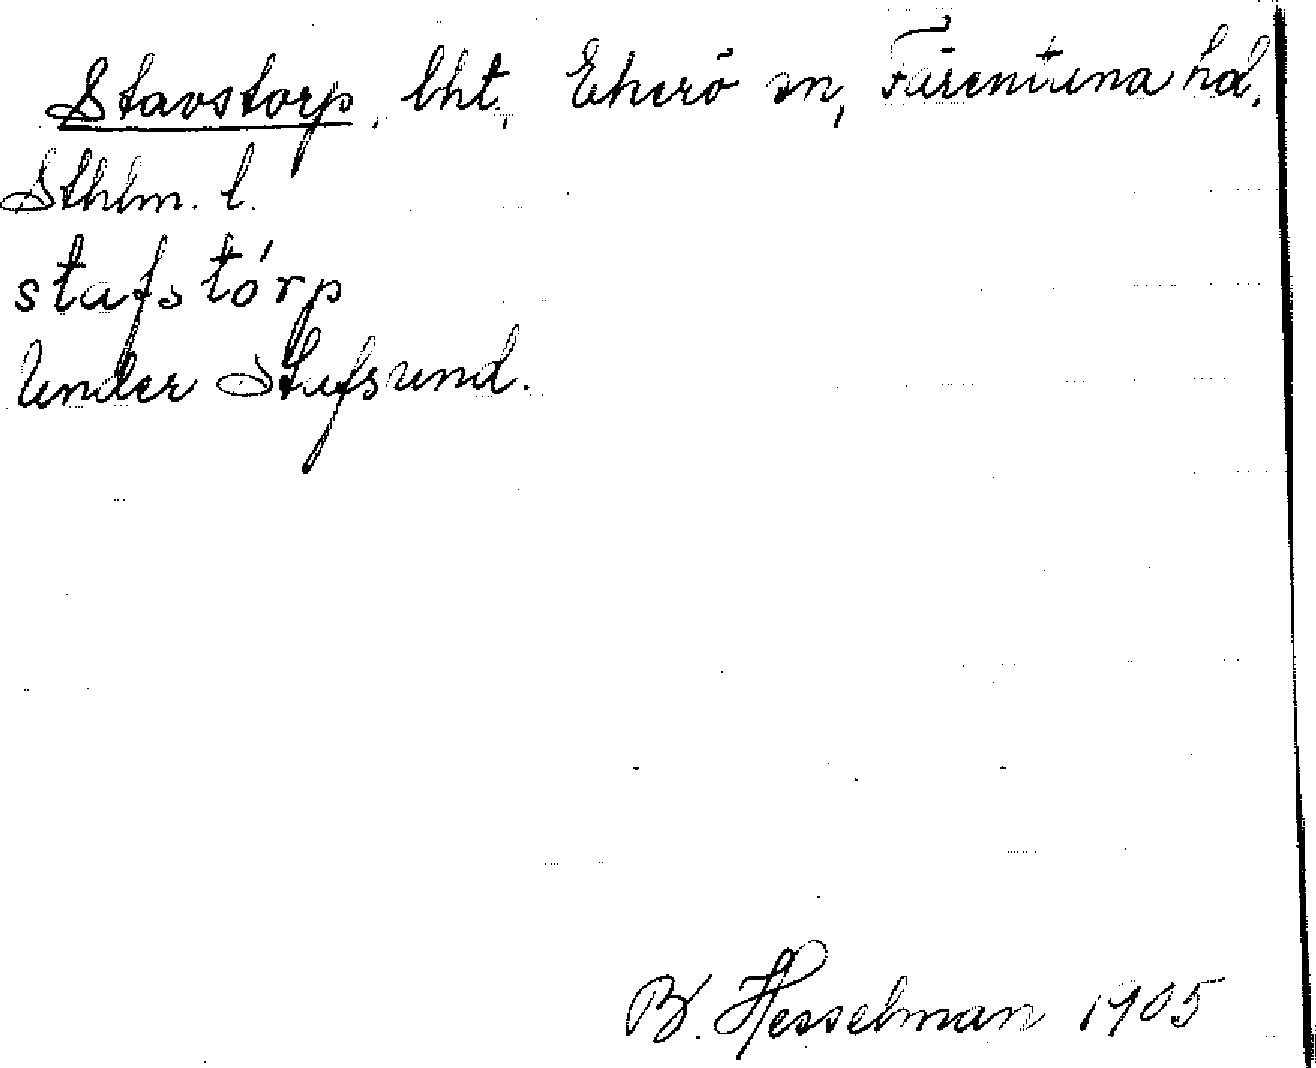 Stavstorp, lht, Ekerö sn, Färentuna hd,
Sthlm. l.
stafstórp
Under Stafsund.
B. Hesselman 1905